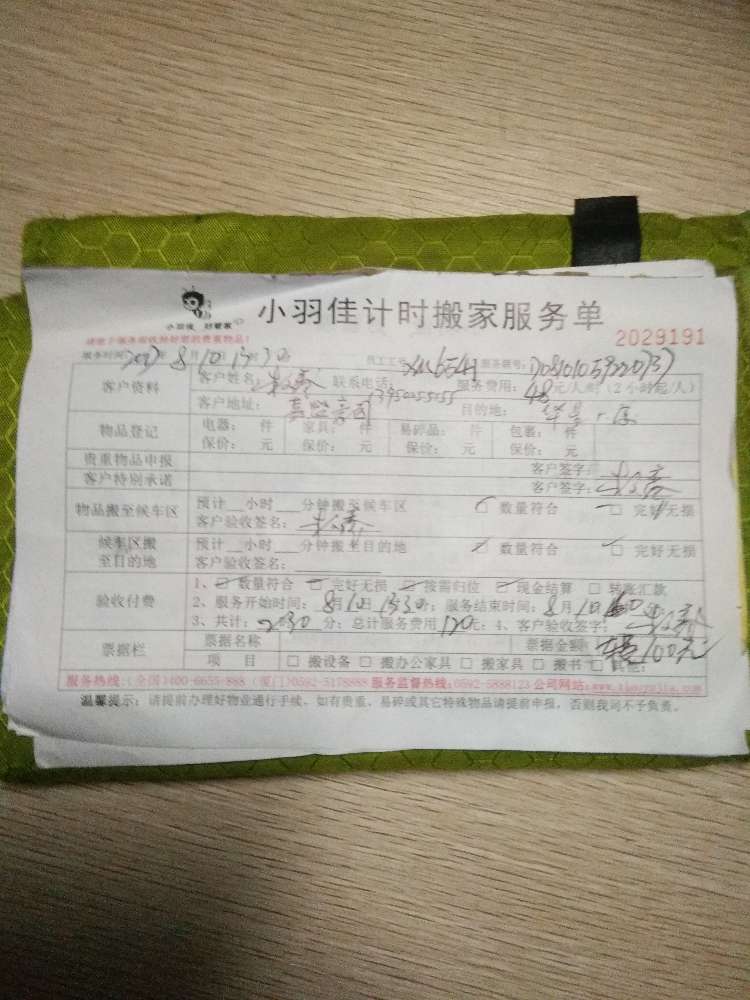 小羽佳计时搬家服务单
小羽佳 好管家
2029191
请您于服务前收拾好您的贵重物品!
服务时间: 年8月10日13时30 员工工号: 服务联号:
客户资料 客户姓名: 联系电话: 13950255055 服务费用: 48元/人/时(2小时起/人)
客户地址: 目的地:
物品登记 电器: 件 家具: 件 易碎品: 件 包裹: 件
保价: 元 保价: 元 保价: 元 保价: 元
贵重物品申报 客户签字:
客户特别承诺 客户签字:
物品搬至候车区 预计__小时___分钟搬至候车区 数量符合 □ 完好无损
客户验收签名:
候车区搬至目的地 预计__小时___分钟搬至目的地 数量符合 □ 完好无损
客户验收签名:
验收付费 1、□ 数量符合 □ 完好无损 □ 按需归位 □ 现金结算 □ 转账汇款
2、服务开始时间: 8月10日 13:30分; 服务结束时间: 8月10
3、共计: 2时30分; 总计服务费用120元; 4、客户验收签字:
票据栏 票据名称 票据金额 100元
项 目 □ 搬设备 □ 搬办公家具 □ 搬家具 □ 搬书 □ 其他:
服务热线:(全国)400-6655-888 (厦门)0592-5178888 服务监督热线:0592-5888123 公司网站:www.xiaoyujia.com
温馨提示: 请提前办理好物业通行手续, 如有贵重、易碎或其它特殊物品请提前申报, 否则我司不予负责。